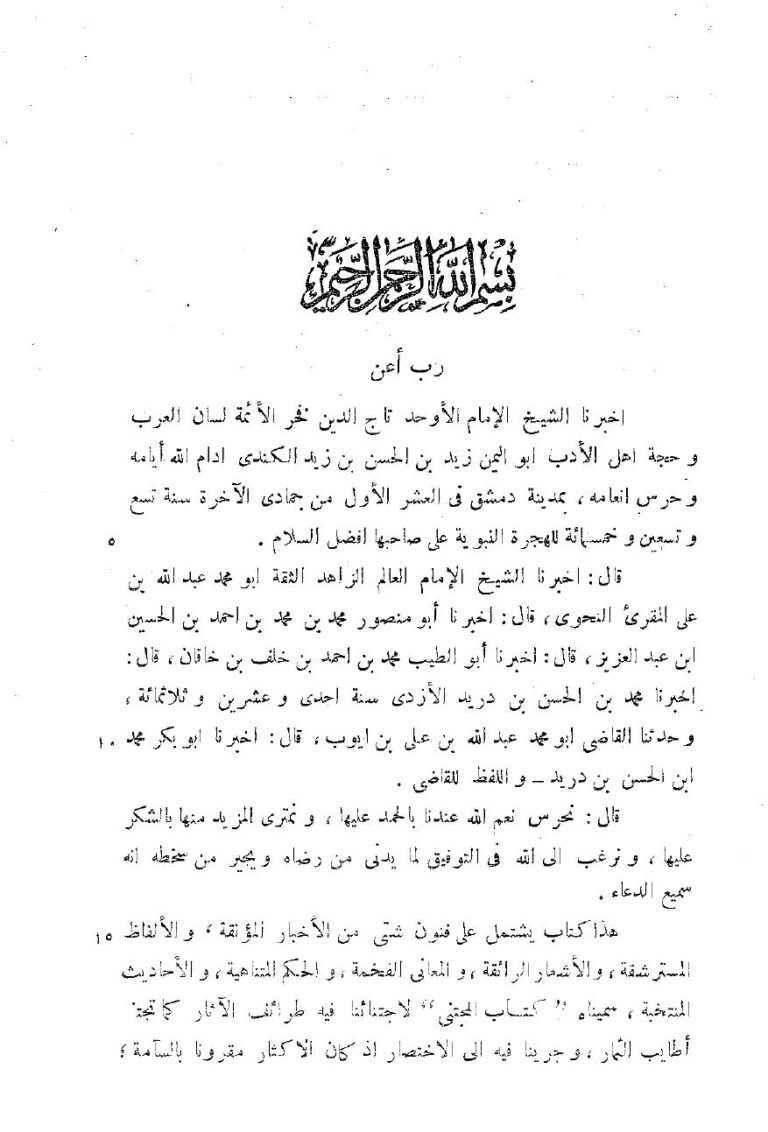 بِسْمِ اللَّهِ الرَّحْمَنِ الرَّحِيمِ
رب أعن
اخبرنا الشيخ الإمام الأوحد تاج الدين فخر الأئمة لسان العرب
و حجة اهل الأدب ابو اليمن زيد بن الحسن بن زيد الكندى ادام الله أيامه
و حرس انعامه ، بمدينة دمشق فى العشر الأول من جمادى الآخرة سنة تسع
و تسعين و خمسمائة للهجرة النبوية على صاحبها افضل السلام . ٥
قال : اخبرنا الشيخ الإمام العالم الزاهد الثقة ابو محمد عبد الله بن
على المقرئ النحوى ، قال : اخبرنا أبو منصور محمد بن محمد بن احمد بن الحسين
ابن عبد العزيز ، قال : اخبرنا أبو الطيب محمد بن احمد بن خلف بن خاقان ، قال :
اخبرنا محمد بن الحسن بن دريد الأزدى سنة احدى و عشرين و ثلاثمائة ،
و حدثنا القاضى ابو محمد عبد الله بن على بن ايوب ، قال : اخبرنا ابو بكر محمد ١٠
ابن الحسن بن دريد ــ و اللفظ للقاضى .
قال : نحرس نعم الله عندنا بالحمد عليها ، و نمترى المزيد منها بالشكر
عليها ، و نرغب الى الله فى التوفيق لما يدنى من رضاه و يجير من سخطه انه
سميع الدعاء .
هذا كتاب يشتمل على فنون شتى من الأخبار المؤنقة ، و الألفاظ ١٥
المسترشقة ، و الأشعار الرائقة ، و المعانى الفخمة ، و الحكم المتناهية ، و الأحاديث
المنتخبة ، سميناه " كتاب المجتنى " لاجتنائنا فيه طرائف الآثار كما تجتنى
أطايب الثمار ، و جرينا فيه الى الاختصار اذ كان الاكثار مقرونا بالسآمة ؛